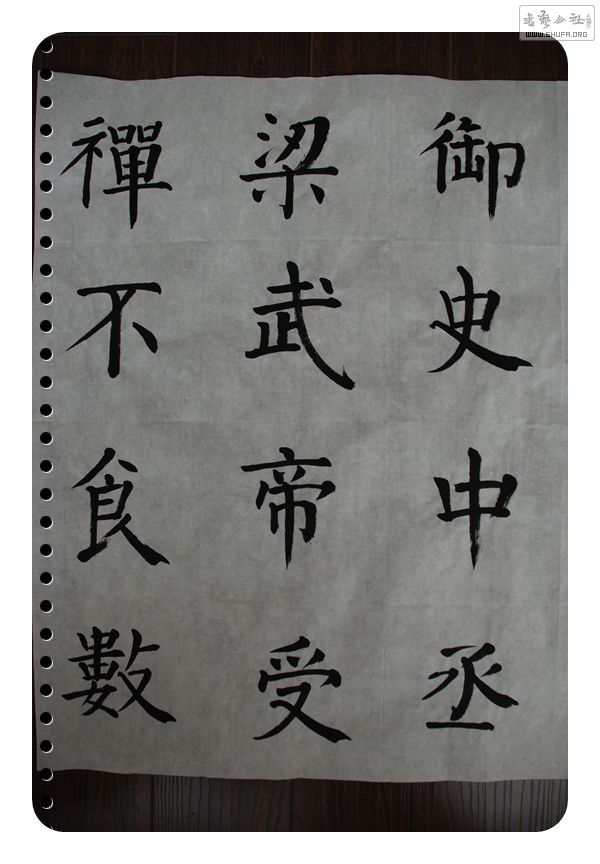 御史中丞
梁武帝受
禪不食數
書藝公社
WWW.SHUFA.ORG